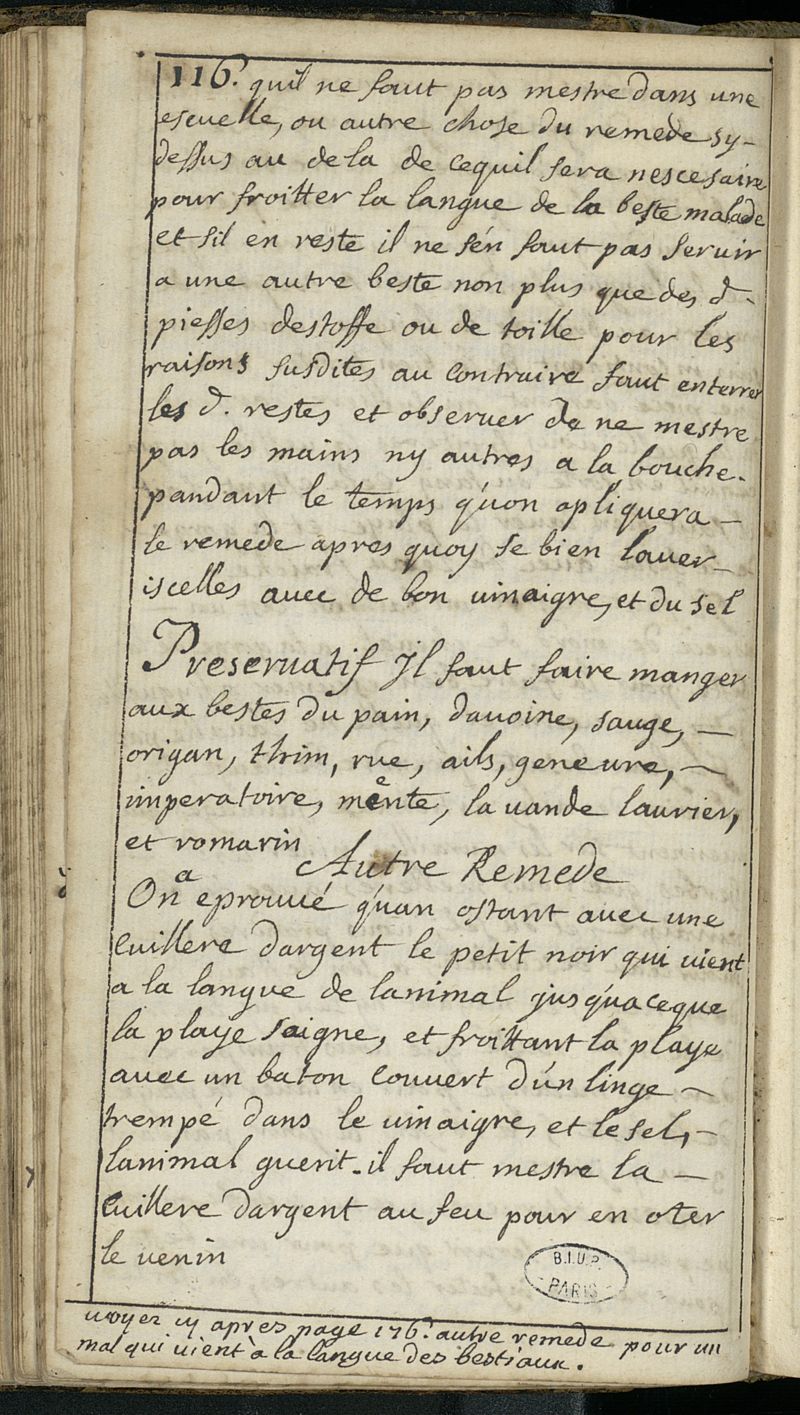 116. quil ne faut pas mestre dans une
escuelle, ou autre chose du remede sy-
dessus au dela de cequil sera nescesaire
pour froitter la langue de la beste malade
et sil en reste il ne s'en faut pas servir
a une autre beste non plus que des d.
piesses destoffe ou de toille pour les
raisons susdites au contraire faut enterrer
les d. restes et observer de ne mestre
pas les mains ny autres a la bouche.
pandant le temps q'uon apliquera -
le remede apres quoy se bien laver -
iscelles avec de bon vinaigre, et du sel
Preservatif Jl faut faire manger
aux bestes du pain, davoine, sauge, -
origan, thim, rue, ails, genevre, -
imperatoire, mente, la vande laurier,
et romarin
Autre Remede
On a eprouvé q'uan ostant avec une
cuillere dargent le petit noir qui vient
a la langue de lanimal jusq'uaceque
la playe saigne, et froittant la playe
avec un baton couvert d'un linge -
trempé dans le vinaigre, et le sel, -
lanimal guerit. il faut mestre la -
cuillere dargent au feu pour en oter
le venin
B.I.U.P.
PARIS
voyez cy apres page 176. autre remede pour un
mal qui vient à la langue des bestiaux.